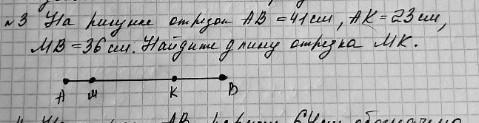 №3 На рисунке отрезок AB = 41 см, AK = 23 см,
MB = 36 см. Найдите длину отрезка MK.
A M K B
AB